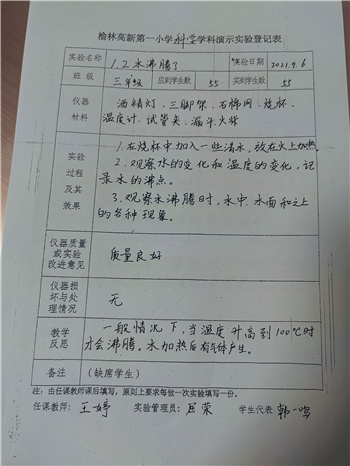 榆林高新第一小学科学学科演示实验登记表
实验名称 1.2 水沸腾了 实验日期 2021.9.6
班 级 三年级 应到学生数 55 实到学生数 55
仪器 酒精灯、三脚架、石棉网、烧杯、
材料 温度计、试管夹、漏斗、火柴
1.在烧杯中加入一些清水,放在火上加热
实验 2.观察水的变化和温度的变化,记
过程 录水的沸点。
及其 3.观察水沸腾时,水中、水面和之上
效果 的各种现象。
仪器质量
或实验 质量良好
改进意见
仪器损
坏与处 无
理情况
教学 一般情况下,当温度升高到100℃时
反思 才会沸腾。水加热后有气体产生。
备注 (缺席学生)
注:由任课教师课后填写,原则上要求每做一次实验填写一份。
任课教师:王婷 实验管理员:屈荣 学生代表 韩一鸣